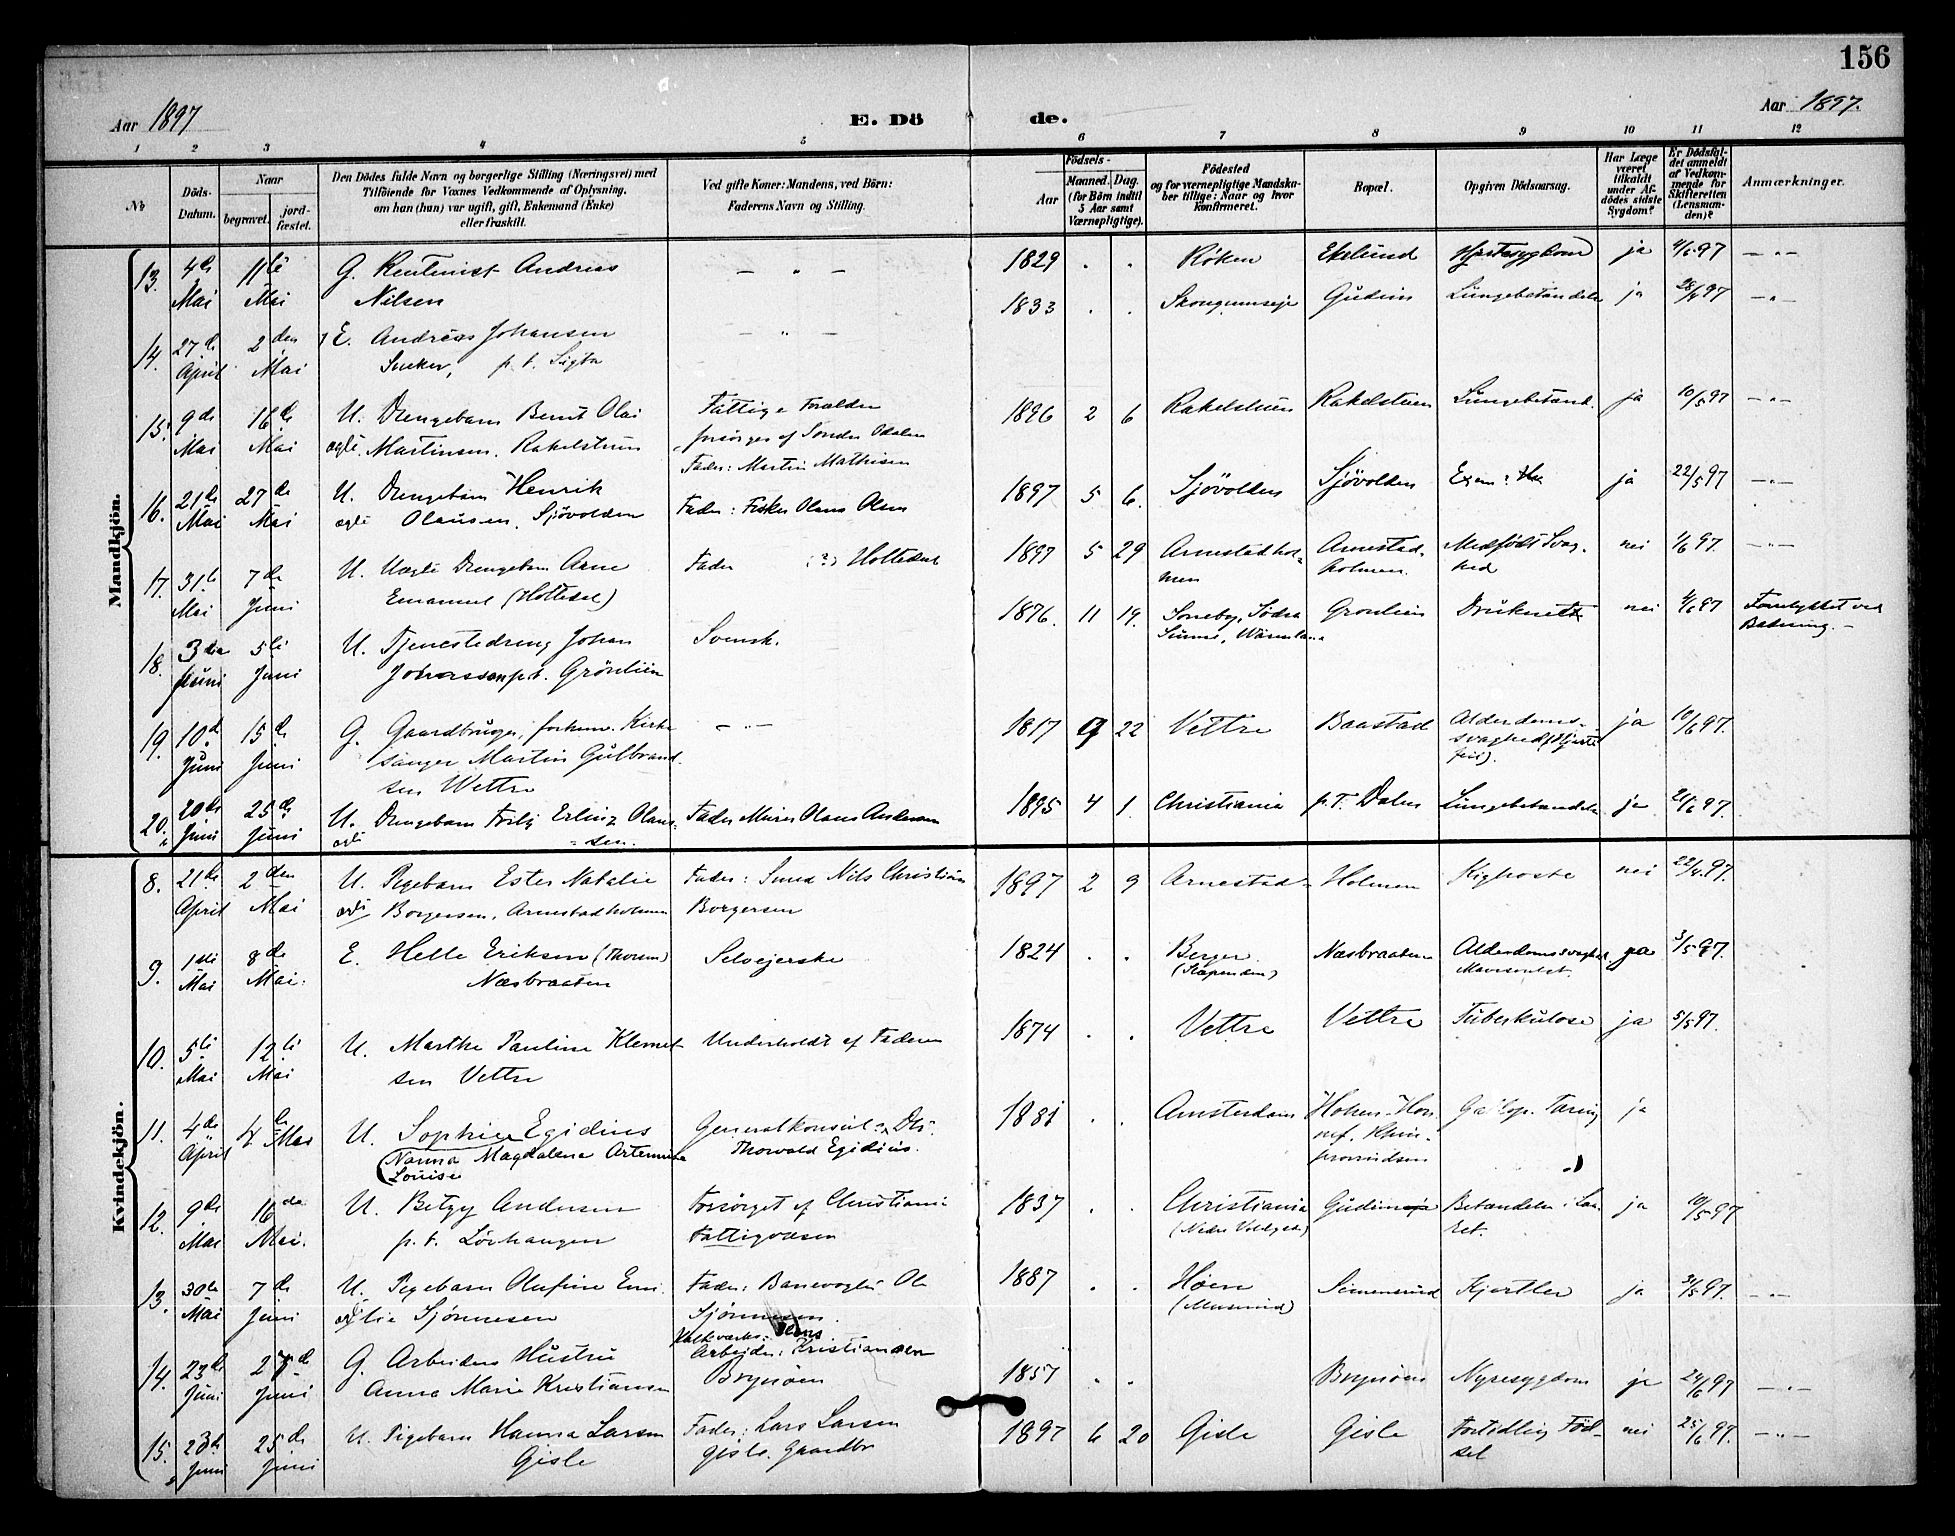 156
Aar 1897
E. Dö de.
Aar 1897.
1 2 3 4 5 6 7 8 9 10 11 12
No
Döds-Datum.
Naar
begravet. jordfæstet.
Den Dödes fulde Navn og borgerlige Stilling (Næringsvei) med
Tilföiende for Voxnes Vedkommende af Oplysning,
om han (hun) var ugift, gift, Enkemand (Enke)
eller fraskilt.
Ved gifte Koner: Mandens, ved Börn:
Faderens Navn og Stilling.
Födsels-
Aar
Maaned. Dag.
(for Börn indtil 5 Aar samt Værnepligtige).
Födested
og for værnepligtige Mandskaber tillige: Naar og hvor konfirmeret.
Bopæl.
Opgiven Dödsaarsag.
Har Læge været tilkaldt under Afdödes sidste Sygdom?
Er Dödsfaldet anmeldt af Vedkommende for Skifteretten (Lensmanden)?
Anmærkninger.
Mandkjön.
13. 4de Mai 11te Mai G. Rentenist Andreas
Nilsen — " — 1829 . . Röken Ekelund Hjertesygdom ja 4/5 97 — " —
14. 27de April 2den Mai E. Andreas Johansen
Sneker, p. t. Sigta — " — 1833 . . Skougumseje Gudim Lungebetændelse ja 28/4 97 — " —
15. 9de Mai 16de Mai U. Drengebarn Bernt Olai
ægte. Martinsen, Rakelstuen
Fattige Forældre
forsörges af Söndre Odalen
Fader: Martin Mathisen
1896 2 6 Rakelstuen Rakelstuen Lungebetænd. ja 10/5 97 — " —
16. 21de Mai 27de Mai U. Drengebarn Henrik
ægte Olausen, Sjövolden
Fader: Fisker Olaus Olsen
1897 5 6. Sjövolden Sjövolden ja 22/5 97 — " —
17. 31te Mai 7de Juni U. Uægte Drengebarn Arne
Emanuel (Holtedal)
Fader (?) Holtedal
1897 5 29 Arnestadholmen Arnestadholmen. Medfödt Svaghed nei 1/6 97. — " —
18. 3die Juni 5te Juni U. Tjenestedreng Johan
Johansson p.t. Grönlien
Svensk.
1876. 11 19. Soneby, Södra
Sunne, Wärmland Gronlien Druknet nei 4/6 97 Forulykket ved
Badning. —
19. 10de Juni 15de Juni G. Gaardbruger, forhenv. Kirke
sanger Martin Gulbrand
sen Wettre — " — 1817 9 22 Vettre Baastad Alderdoms-
svaghed (Hjerte
feil). ja 10/6 97.
20. 20de Juni 25de Juni U. Drengebarn Erling Olaus-
ægte sen.
Fader Murer Olaus Andersen
1895 4 1. Christiania p.T. Dalen Lungebetændelse ja 21/6 97.
Kvindekjön.
8. 21de April 2den Mai U. Pigebarn Ester Natalie
ægte Borgersen, Arnestadholmen
Fader: Smed Nils Christian
Borgersen
1897 2 9 Arnestad- Holmen Kighoste nei 22/4 97.
9. 1ste Mai 8de Mai. E. Helle Eriksen (Thorsen)
Næsbraaten
Selvejerske
1824 . . Berger Næsbraaten Alderdomssvaghed ja 3/5 97.
10. 5te Mai 12te Mai U. Marthe Pauline Klemet
sen Vettre
Underholdt af Faderen
1874 . . Vettre Vettre Tuberkulose ja 5/5 97.
11. 4de April 4de Mai U. Sophie Egidius
(Nanna Magdalena Artemise
Louise
Generalkonsul
Thorvald Egidius.
1881 . . Amsterdam Hohen-Hon
nef, Rhin-
provindsen Galop. Tæring ja
12. 9de Mai 16de Mai. U. Betzy Andersen
p. t. Lövhaugen
Forsörget af Christiania
Fattigvæsen
1837 . . Christiania
(Nedre Voldgade) Gudimseje Betændelse i Laa
ret. ja 10/5 97
13. 30te Mai 7de Juni U. Pigebarn Olufine Emi
ægte lie Sjönnesen
Fader: Banevogter Ole
Sjönnesen.
1887 . . Höien
Semensrud Kjertler ja 31/5 97. — " —
14. 23de Juni 27de Juni G. Arbeiders Hustru
Anna Marie Kristiansen
Kalkværks- Hans
Arbejder: Kristiansen
Brynsöen
1857 . . Brynsöen Nyresygdom ja 24/6 97 — " —
15. 23de Juni 25de Juni U. Pigebarn Hanna Larsen
Gisle
Fader: Lars Larsen
Gisle. Gaardbr
1897 6 20 Gisle Gisle Fortidlig Föd-
sel nei 25/6 97. — " —